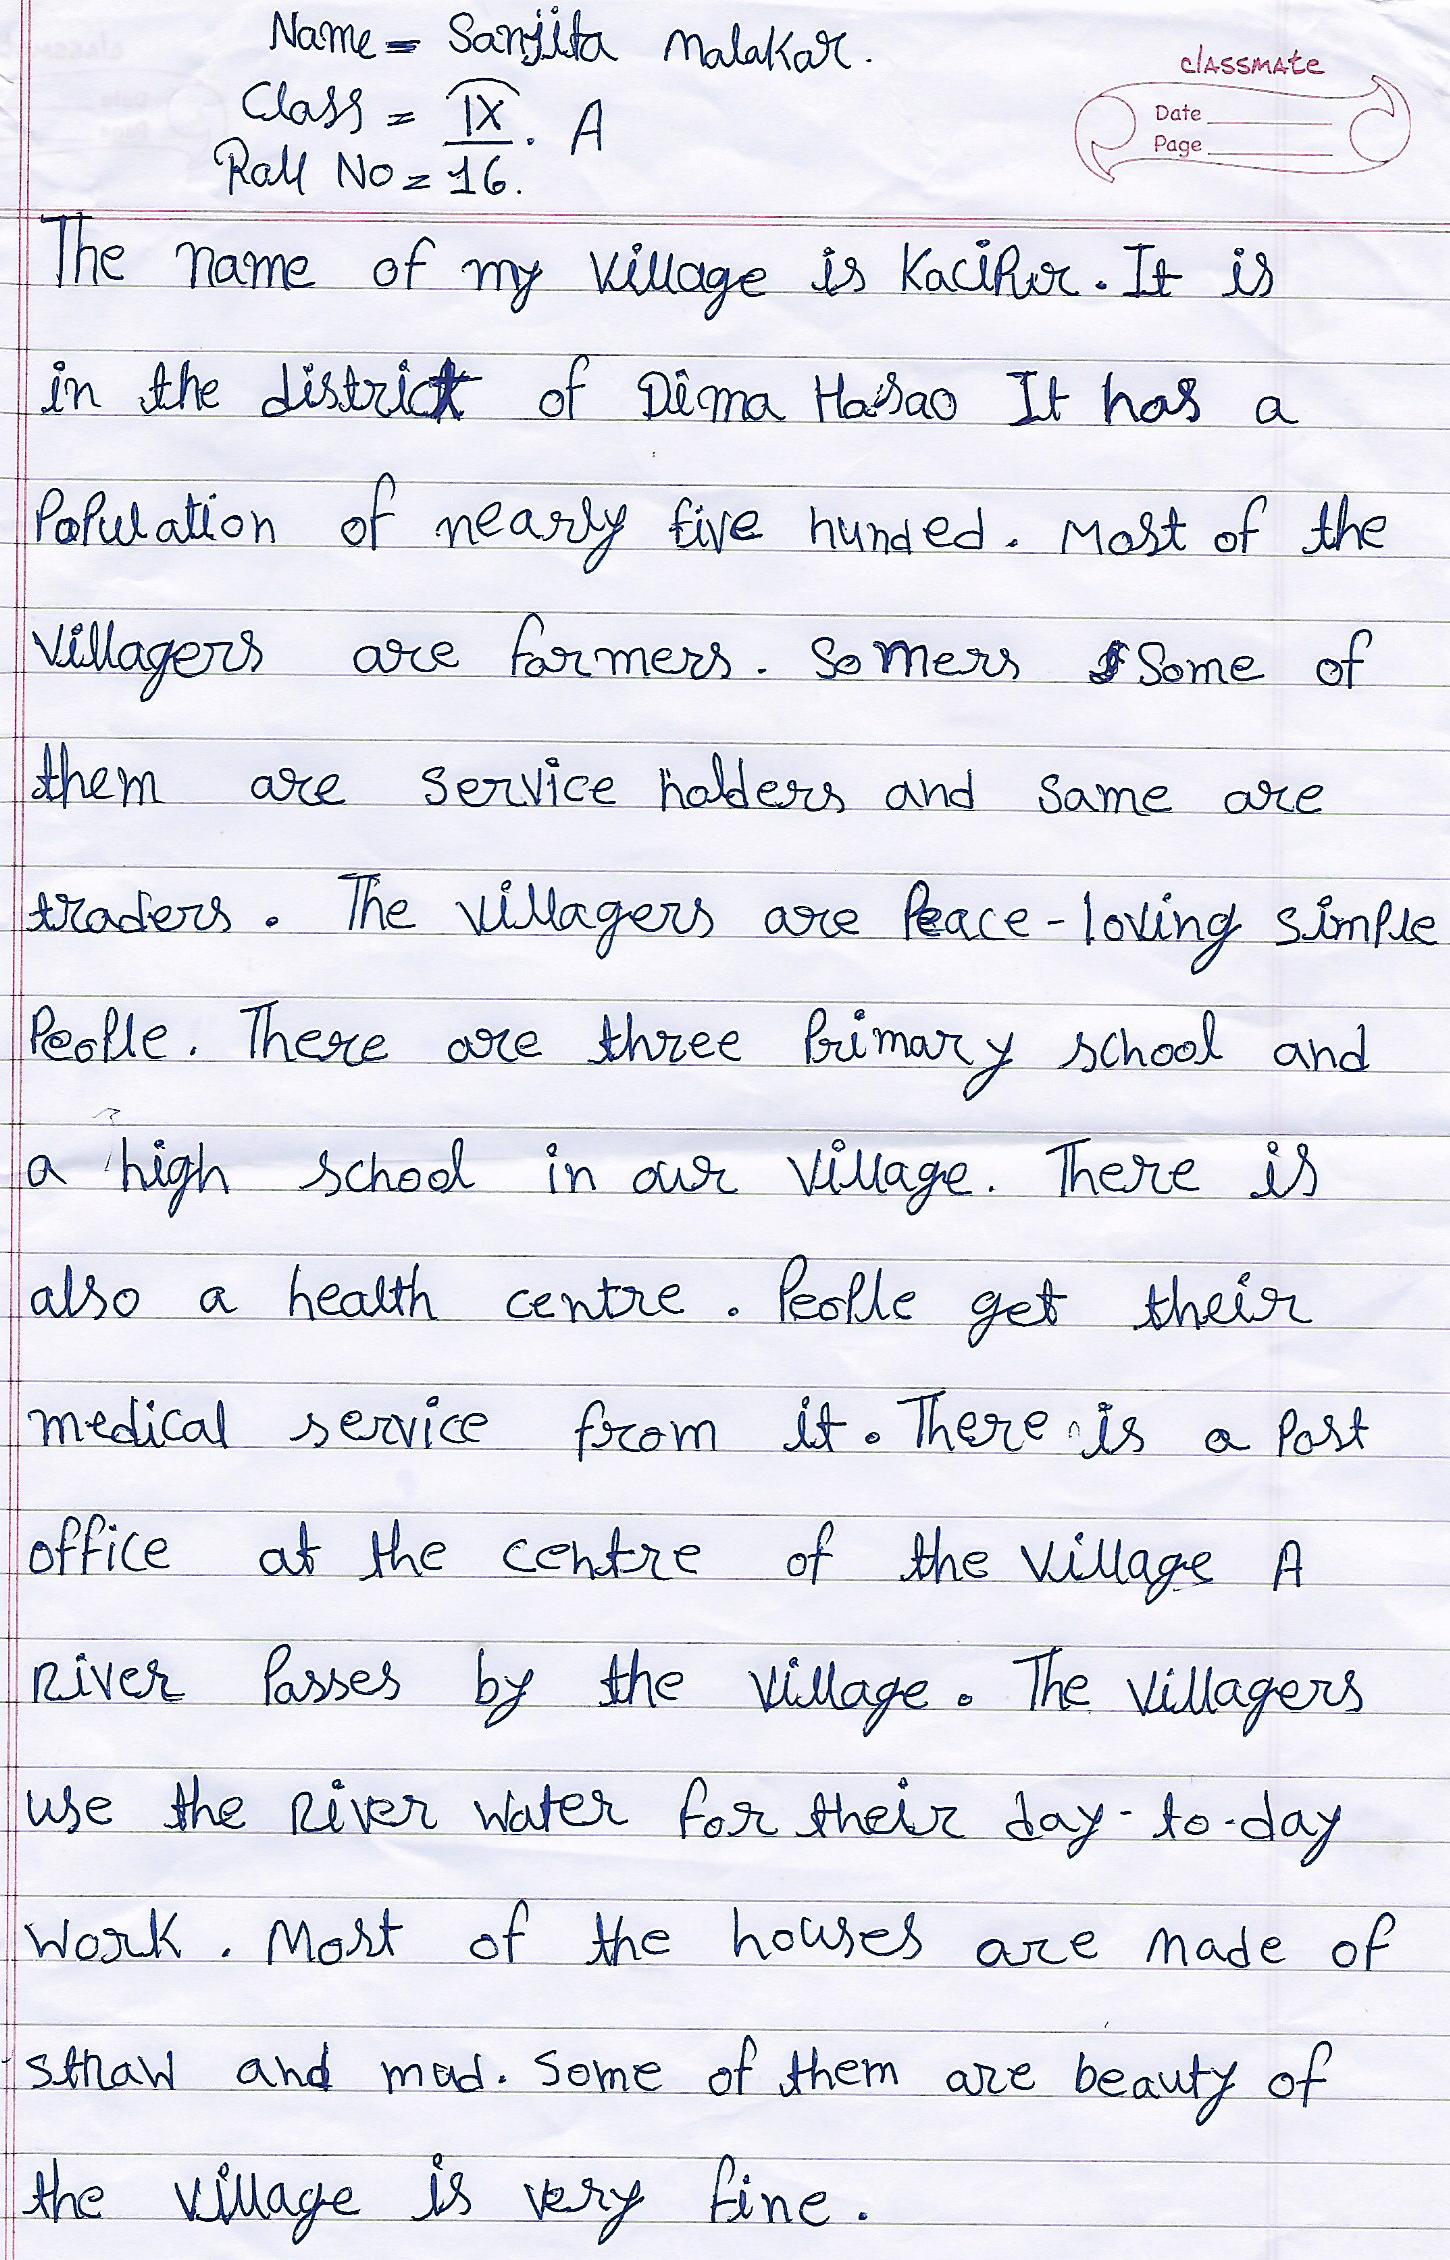 Name = Sanjita Malakar.
classmate
Class = IX. A
Date
Page
Roll No = 16.
The name of my village is Kacipur. It is
in the district of Dima Hasao It has a
Population of nearly five hunded. Most of the
villagers are farmers. Somers Some of
them are service holders and same are
traders. The villagers are Peace-loving simple
People. There are three Primary school and
a high school in our village. There is
also a health centre. People get their
medical service from it. There is a Post
office at the centre of the village A
River Passes by the village. The villagers
use the River water for their day-to-day
work. Most of the houses are made of
straw and mud. Some of them are beauty of
the village is very fine.